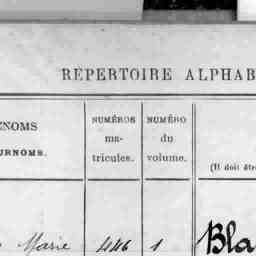 REPERTOIRE ALPHAB
ENOMS
URNOMS.
NUMÉROS
ma-
tricules.
NUMÉRO
du
volume.
(Il doit êtr
Marie 446 1 Bla